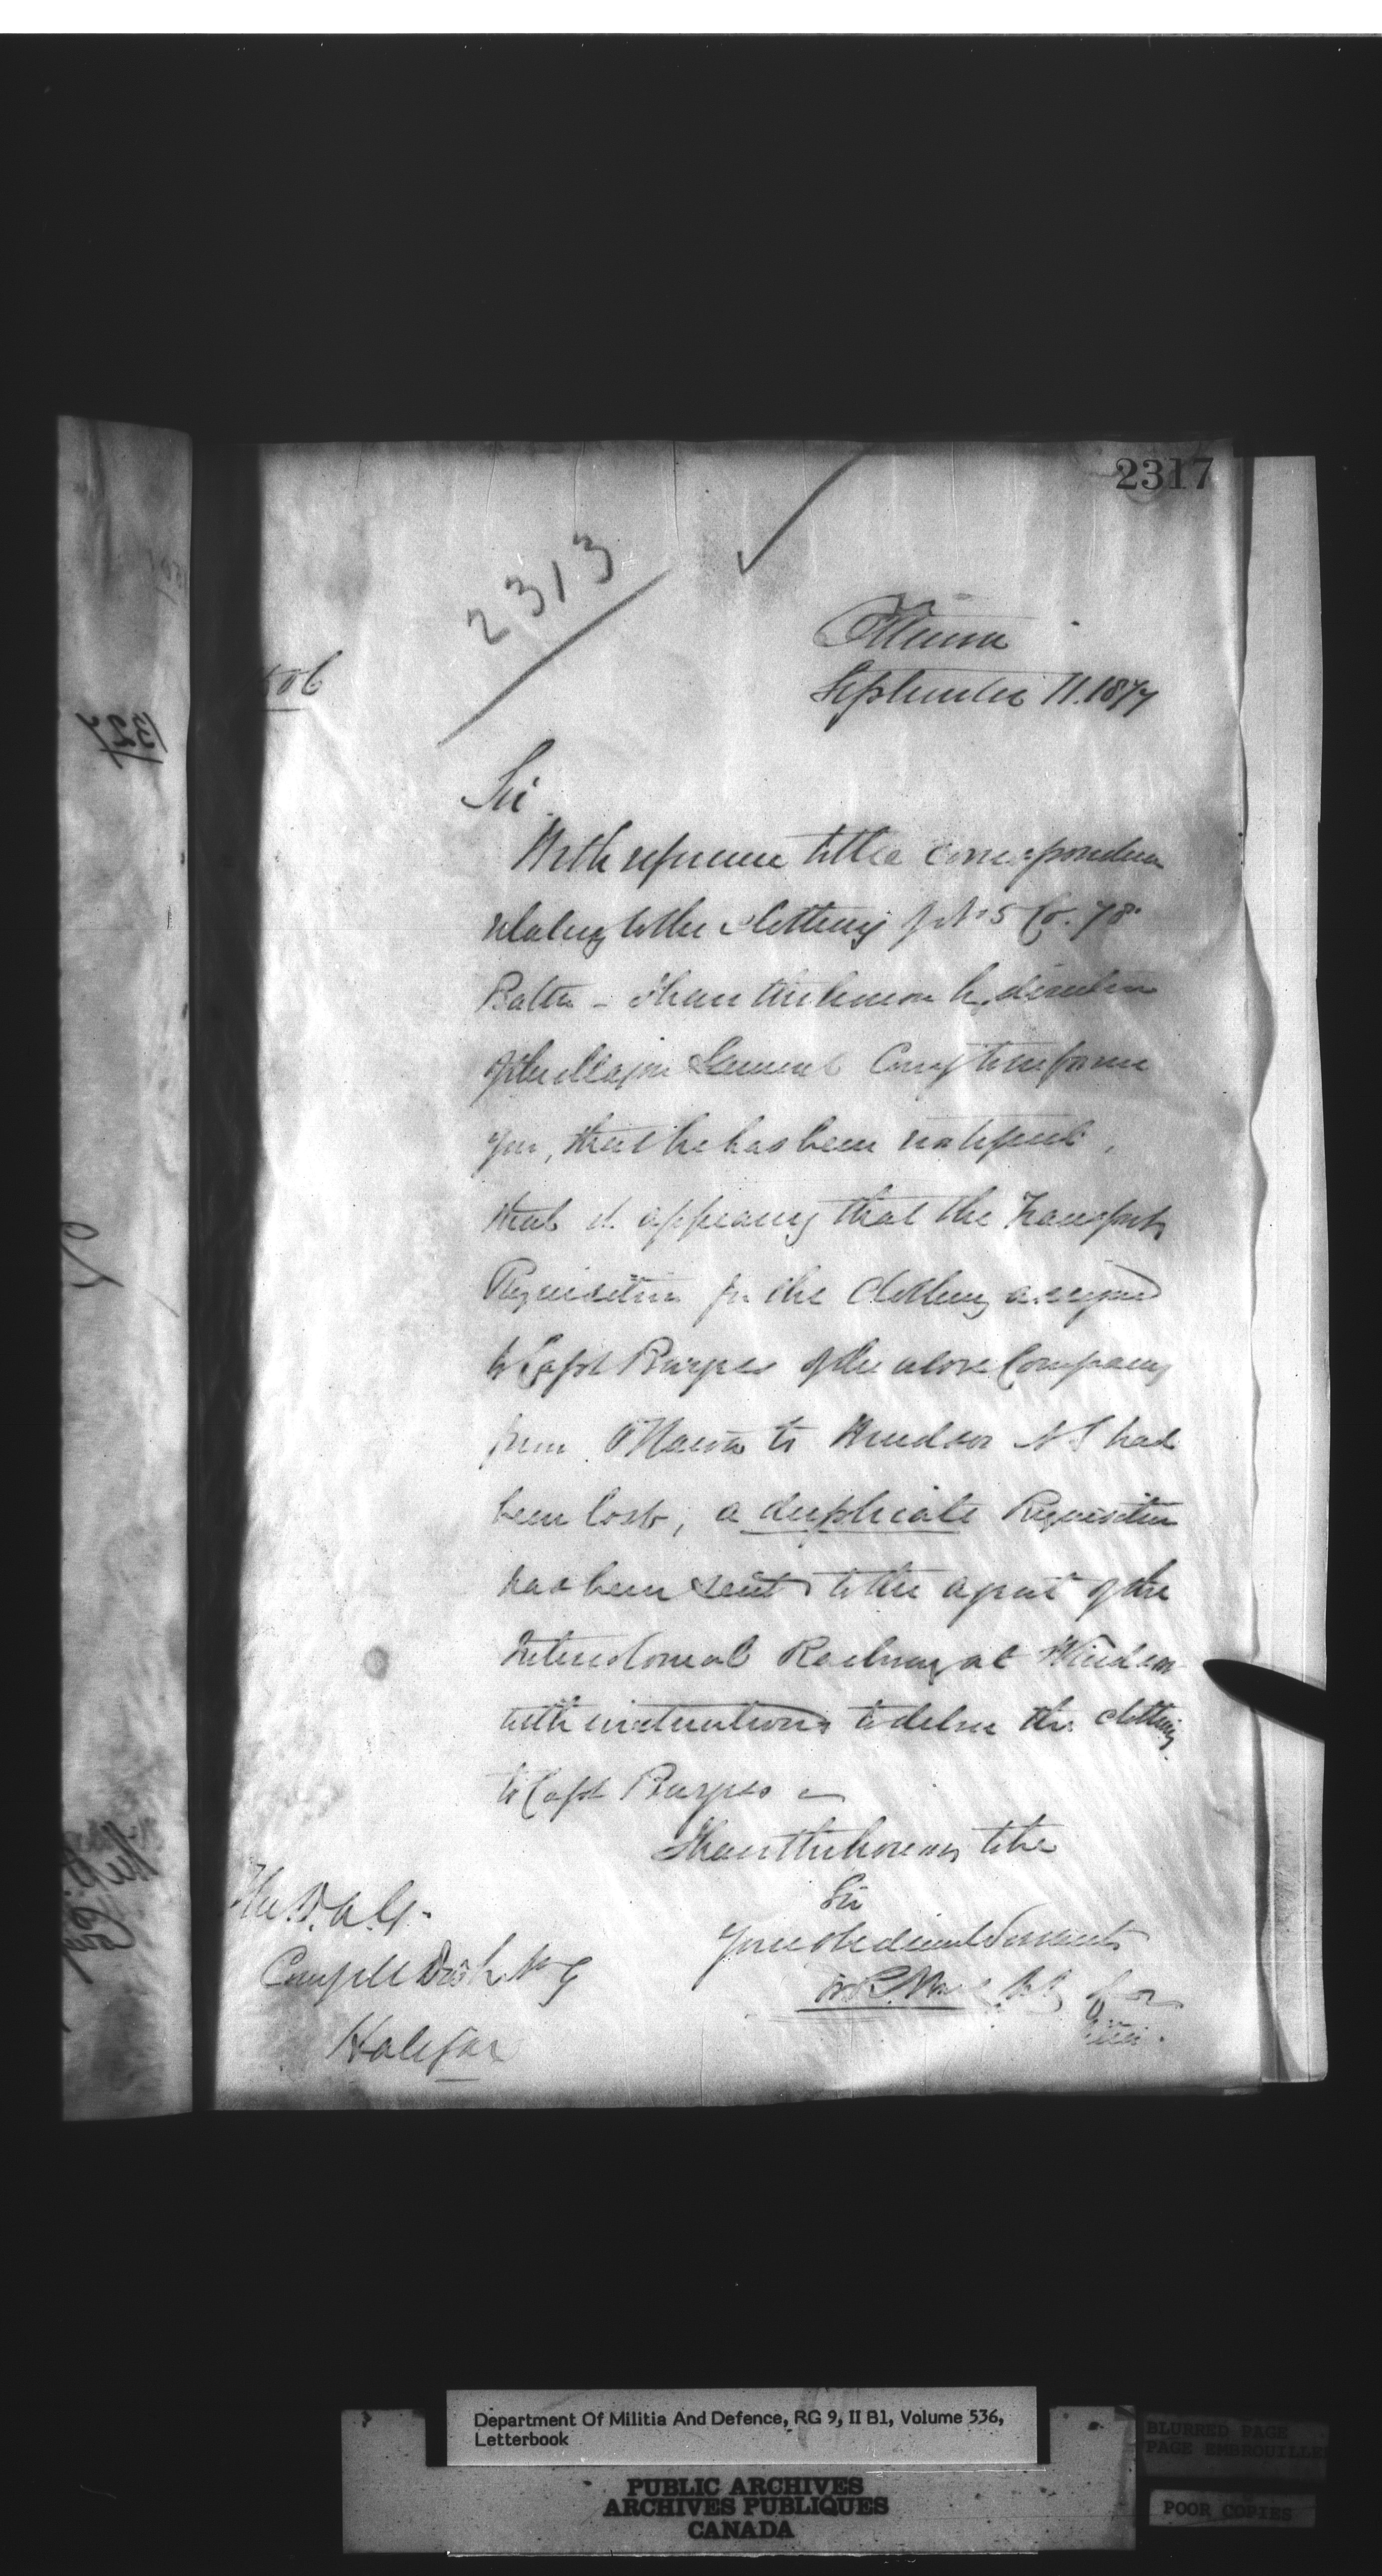 2317
2313
Ottawa
September 11. 1877
Sir
With reference to the correspondence
relating to the clothing of No 5 Co. 78
Battn - I have the honor by direction
of the Major General Comg to inform
you, that he has been notified,
that it appearing that the Transport
Requisition for the Clothing assigned
to Capt Burpee of the above Company
from Ottawa to Windsor N S had
been lost, a duplicate Requisition
has been sent to the agent of the
Intercolonial Railway at Windsor
with instructions to deliver the clothing
to Capt Burpee
I have the honor to be
Sir
Your obedient Servant
The D.A.G.
Comg Mil Dist No 9
Halifax
Department Of Militia And Defence, RG 9, II B1, Volume 536,
Letterbook
PUBLIC ARCHIVES
ARCHIVES PUBLIQUES
CANADA
BLURRED PAGE
PAGE EMBROUILLE
POOR COPIES